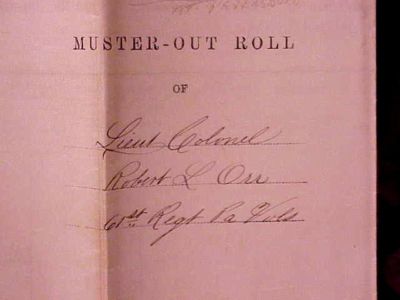 MUSTER-OUT ROLL
OF
Lieut Colonel
Robert L Orr
61st Regt Pa Vols